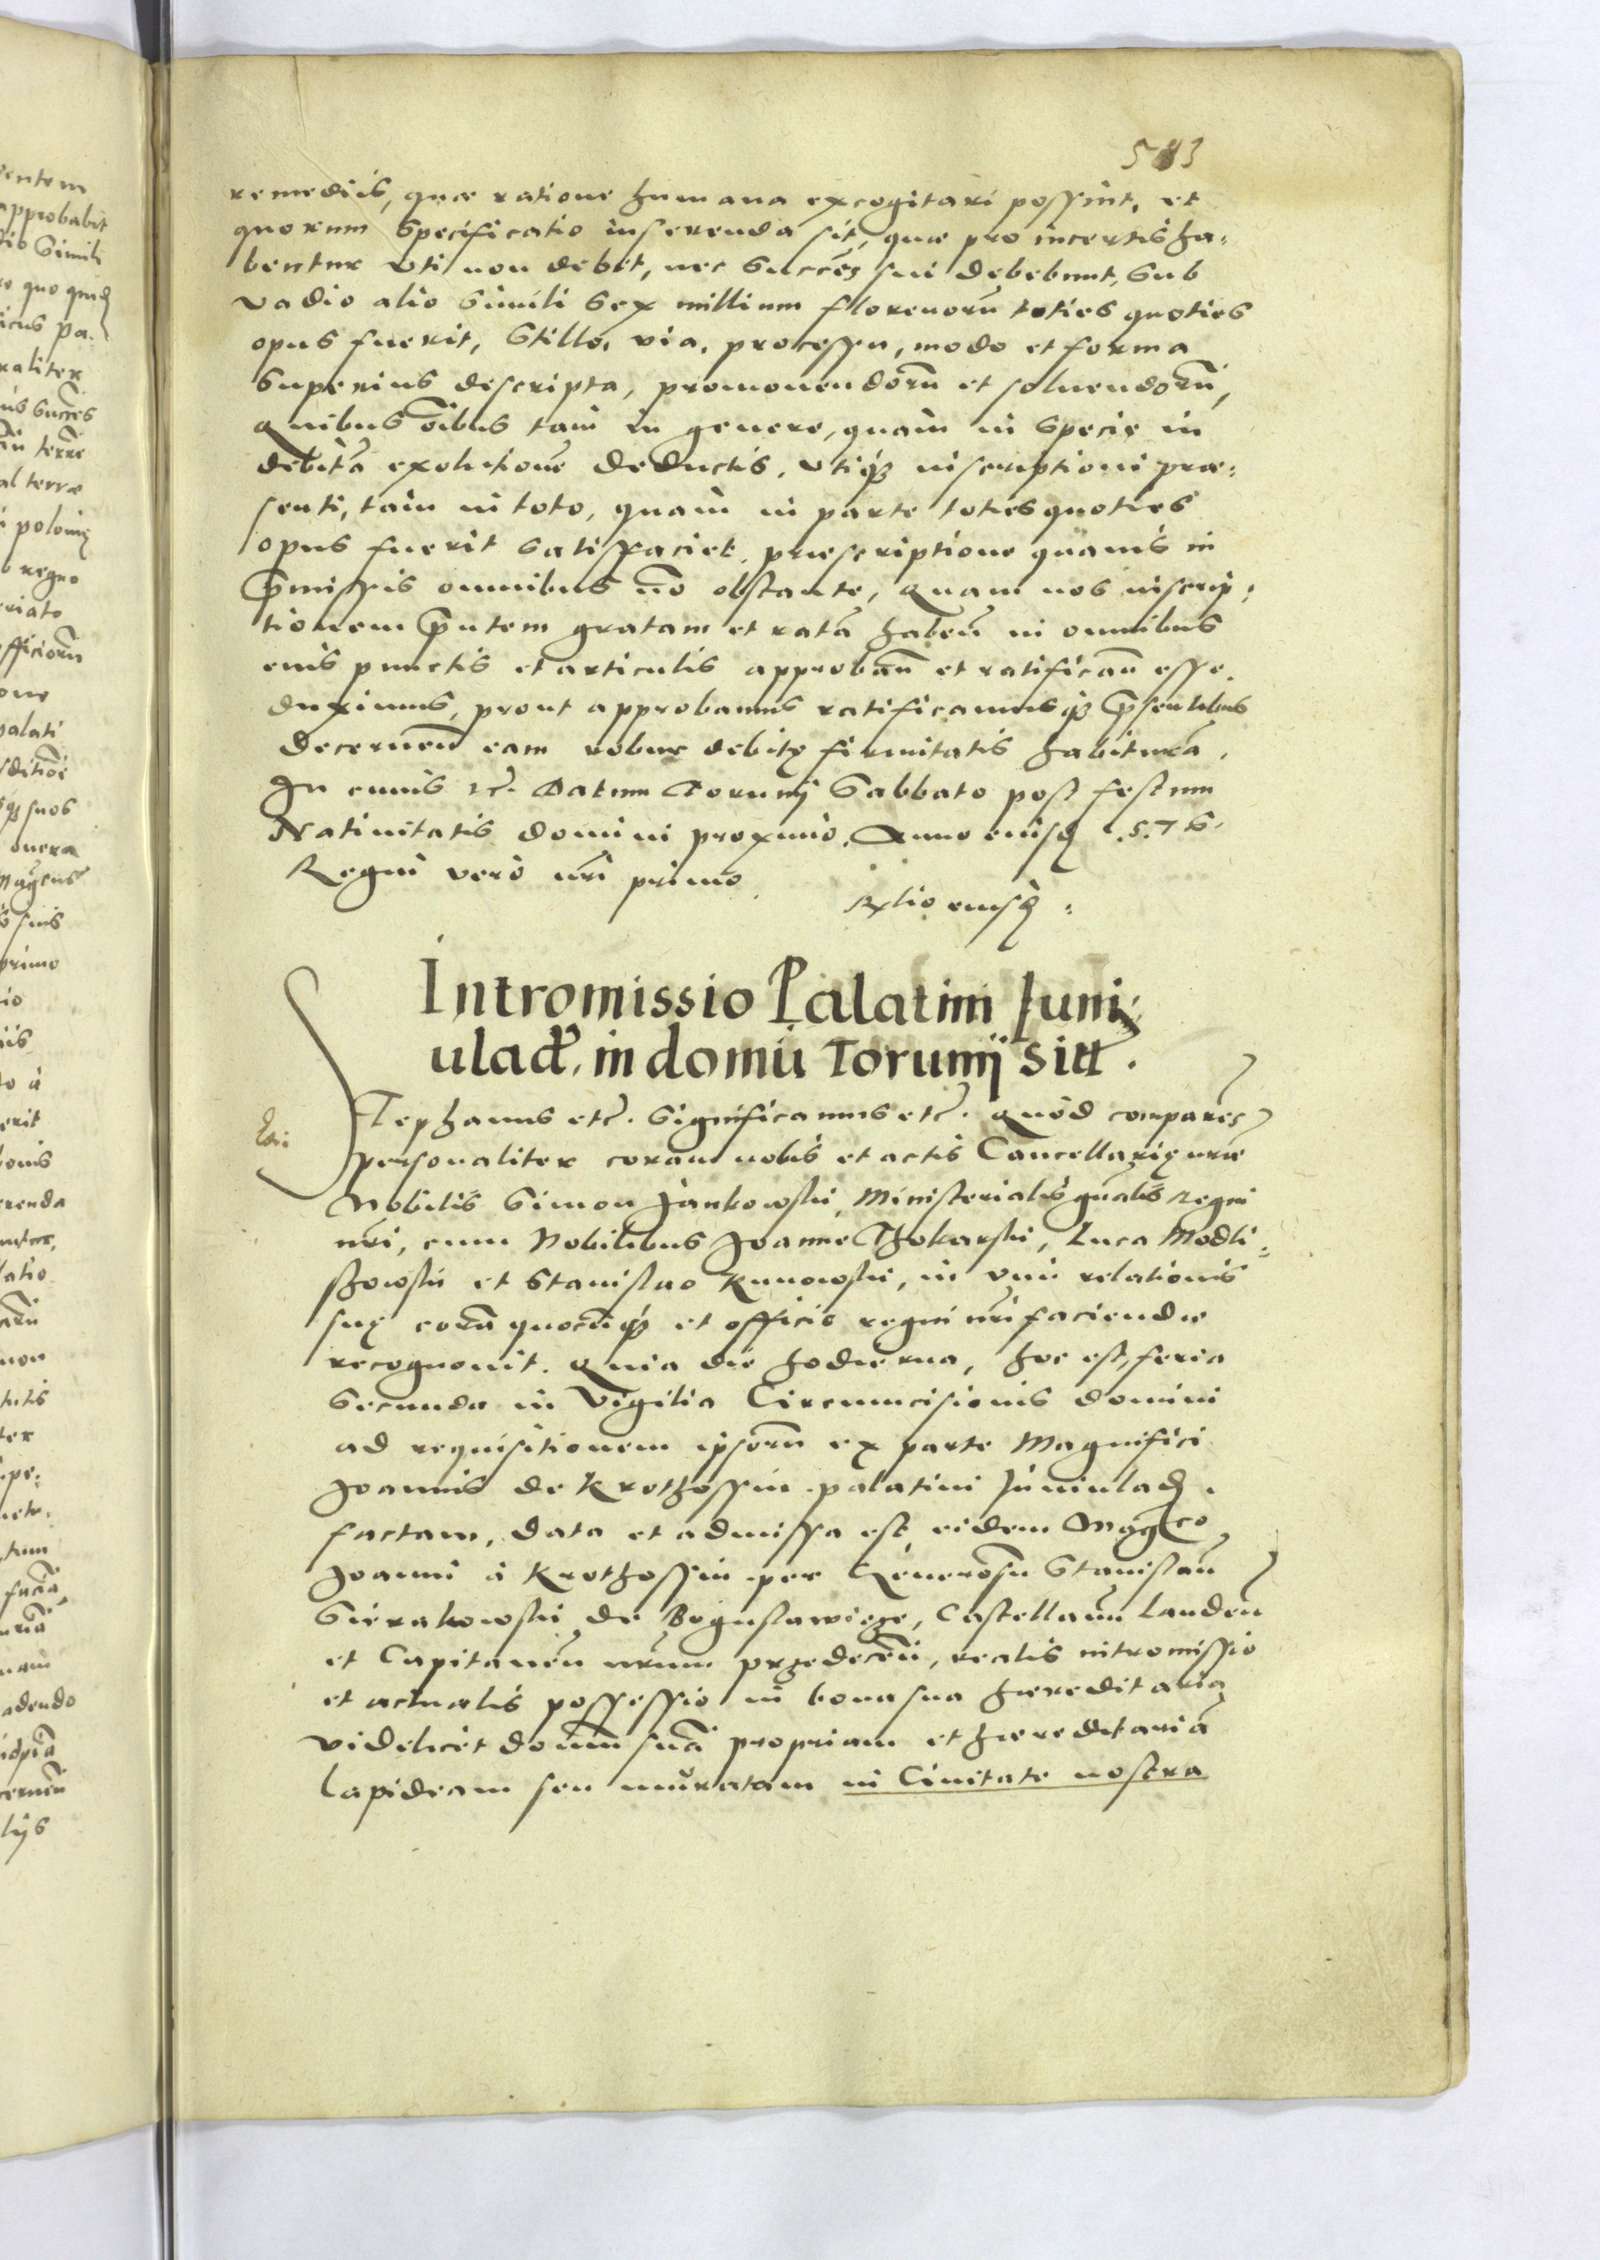 583
remediis, quæ ratione humana excogitari possint, et
quorum specificatio inserenda sit, quæ pro incertis ha-
bentur uti non debet, nec succes sui debebunt, sub
vadio alio simili sex millium florenorū toties quoties
opus fuerit, stillo, via, processu, modo et forma
superius descripta, promovendorū et soluendorū,
quibus oībus tam in genere, quàm in specie in
debitā exolutionē deductis, utiq inscriptioni præ-
senti, tam in toto, quàm in parte toties quoties
opus fuerit satisfaciet, præscriptione quauis in
pmissis omnibus nō obstante, Quam nos inscrip-
tionem pntem gratam et ratā habeñ in omnibus
eius punctis et articulis approbañ et ratificañ esse
duximus, prout approbamus ratificamusq psentibus
decerneñ eam robur debitę firmitatis habiturā.
In cuius rc. Datum Torunij Sabbato post festum
Natiuitatis domini proximo, Anno eiusd 1576.
Regni verò nri primo.
Rltio eiusd:
Intromissio Palatini Iuni-
ulad. in domū Torunij sitā.
STephanus etc. Significamus etc. Quòd comparēs
personaliter coram nobis et actis Cancellarię nræ
Nobilis Simon Jankowski Ministerialis gnalis regni
nri, cum Nobilibus Joanne Thokarski, Luca Modli-
showski et Stanislao Kunowski, in vim relationis
suę corā quocūq et officio regni nri faciendæ
recognouit. Quia die hodierna, hoc est, feria
secunda in vigilia Circumcisionis domini
ad requisitionem ipsorū ex parte Magnifici
Joannis de Krothossin palatini Juniulad.
factam, data et admissa est eidem Magco
Joanni à Krothossin per Generosū Stanislaū
Sierakowski de Boguslawicze, Castellanū Landeñ
et Capitaneū nrum przedeceñ, realis intromissio
et actualis possessio in bona sua hæreditaria
videlicet domū suā propriam et hæreditariā
lapideam seu muratam in Ciuitate nostra